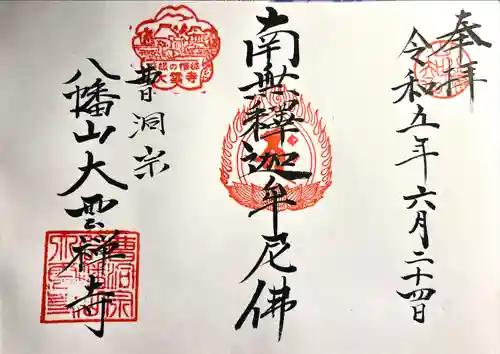 奉拝
令和五年六月二十四日
南無釋迦牟尼佛
曹洞宗
八幡山大雲禅寺